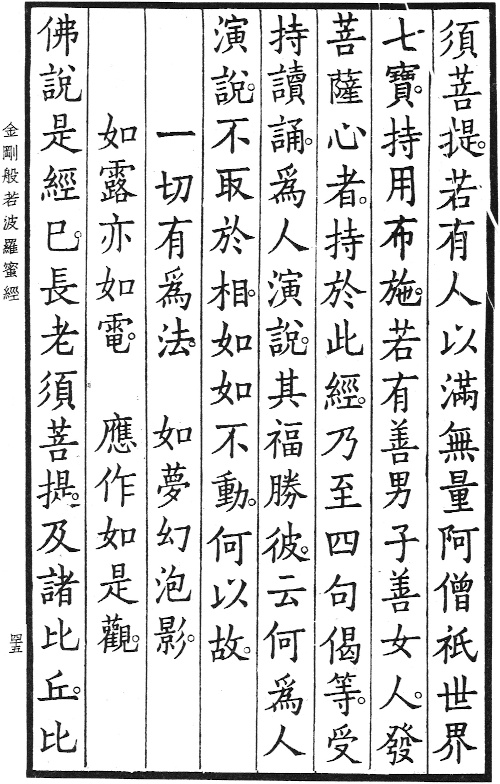 須菩提。若有人以滿無量阿僧祇世界
七寶。持用布施。若有善男子善女人。發
菩薩心者。持於此經。乃至四句偈等。受
持讀誦。為人演說。其福勝彼。云何為人
演說。不取於相。如如不動。何以故。
一切有為法。 如夢幻泡影。
如露亦如電。 應作如是觀。
佛說是經已。長老須菩提。及諸比丘。比
金剛般若波羅蜜經
四五